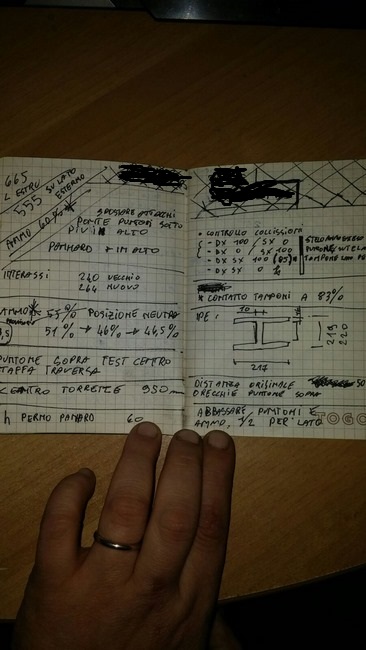 665
L ESTRU
555 SU LATO
ESTERNO
AMMO 60%
SPOSTARE ATTACCHI
PONTE PUNTONI SOTTO
PIU ALTO
PANHARD + IN ALTO
INTERASSI 240 VECCHIO
264 NUOVO
AMMO 55% POSIZIONE NEUTRA
51% → 46% → 44,5%
PUNTONE SOPRA TEST CENTRO
STAFFA TRAVERSA
CENTRO TORRETTE 950
h PERNO PANARD 60
• CONTROLLO COLLISIONI
- DX 100 / SX 0
- DX 0 / SX 100
- DX SX 100 (85)
- DX SX 0
STELO AMMO ESEO
PUNTONE VS TELA
TAMPONE
* CONTATTO TAMPONI A 83%
IPE:
10
219
220
217
DISTANZA ORIGINALE 50
ORECCHIE PUNTONE SOPRA
ABBASSARE PUNTONI E
AMMO, 1/2 PER LATO
TOGO